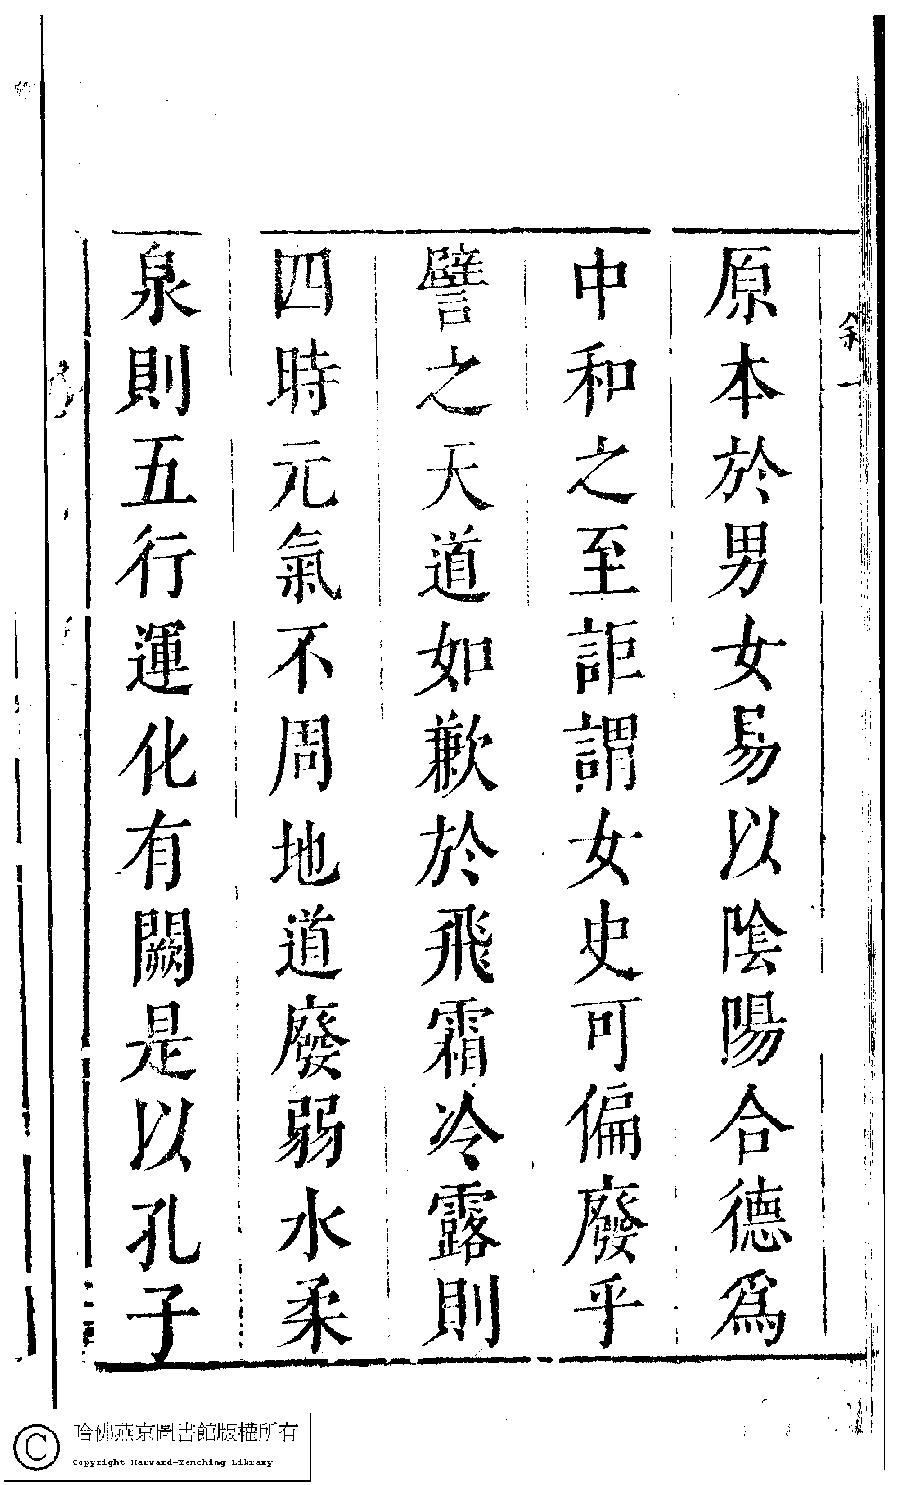 原本於男女易以陰陽合德爲
中和之至詎謂女史可偏廢乎
譬之天道如歉於飛霜冷露則
四時元氣不周地道廢弱水柔
泉則五行運化有闕是以孔子
哈佛燕京圖書館版權所有
Copyright Harvard-Yenching Library